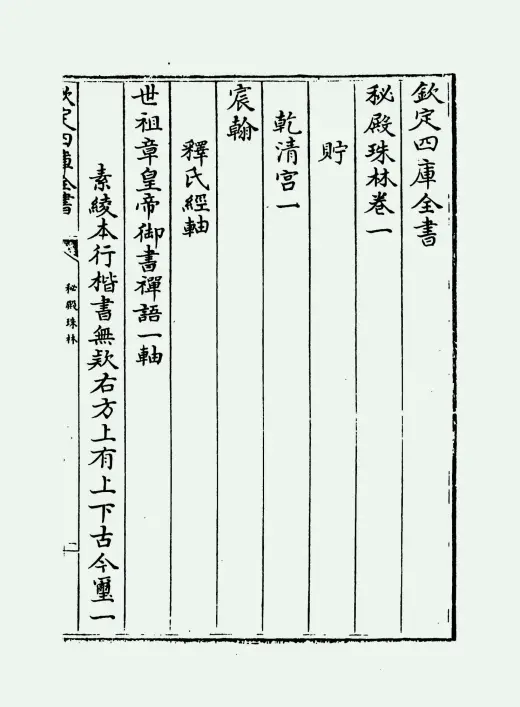 欽定四庫全書
秘殿珠林卷一
貯
乾清宫一
宸翰
釋氏經軸
世祖章皇帝御書禪語一軸
素綾本行楷書無欵右方上有上下古今璽一
欽定四庫全書
秘殿珠林
一